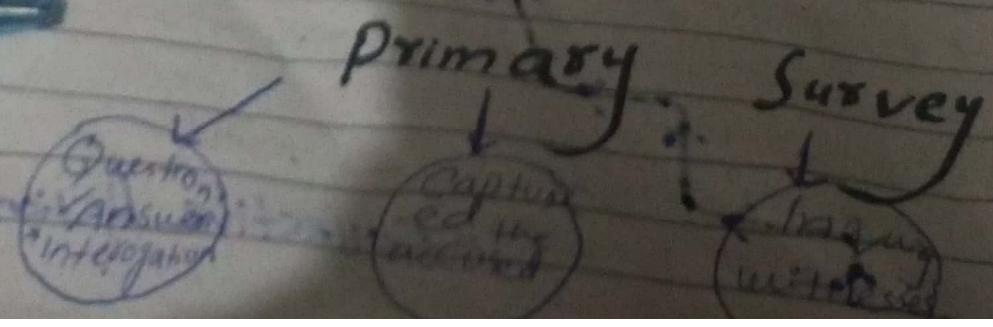 Primary Survey
Question
Answer
interogation
Captur
ed the
witnesses